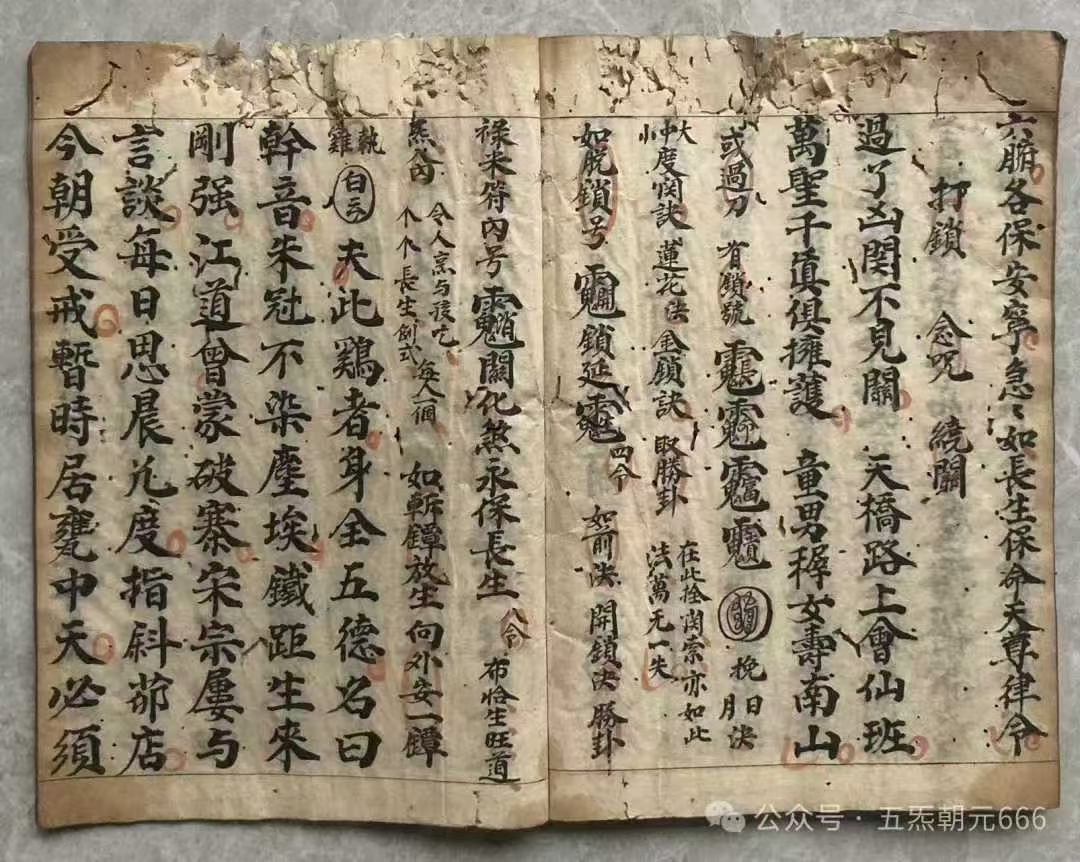 六腑各保安寧急〻如長生保命天尊律令
打鎖 念咒 繞關
過了凶関不見關 天橋路上會仙班
萬聖千眞俱擁護 童男稺女壽南山
或過刀 有鎖號 挽日月決
大中小度関訣 蓮花法 金鎖訣 取勝卦 在此拴関崇亦如此法萬无一失
如脱鎖号 鎖延 四令 如前決 開鎖決 勝卦
禄来符内号 關化煞永保長生 八令 布恰生旺道
炁內 令人烹与孩吃 每人一個 个个長生創式 如斬罈放生向外安一罈
執雞 白云 夫此鷄者身全五德名曰
幹音朱冠不染塵埃鐵距生來
剛强江道曾蒙破寨宋宗屢与
言談每日思晨凣度指斜茆店
今朝受戒暫時居甕中天必須
公众号·五炁朝元666